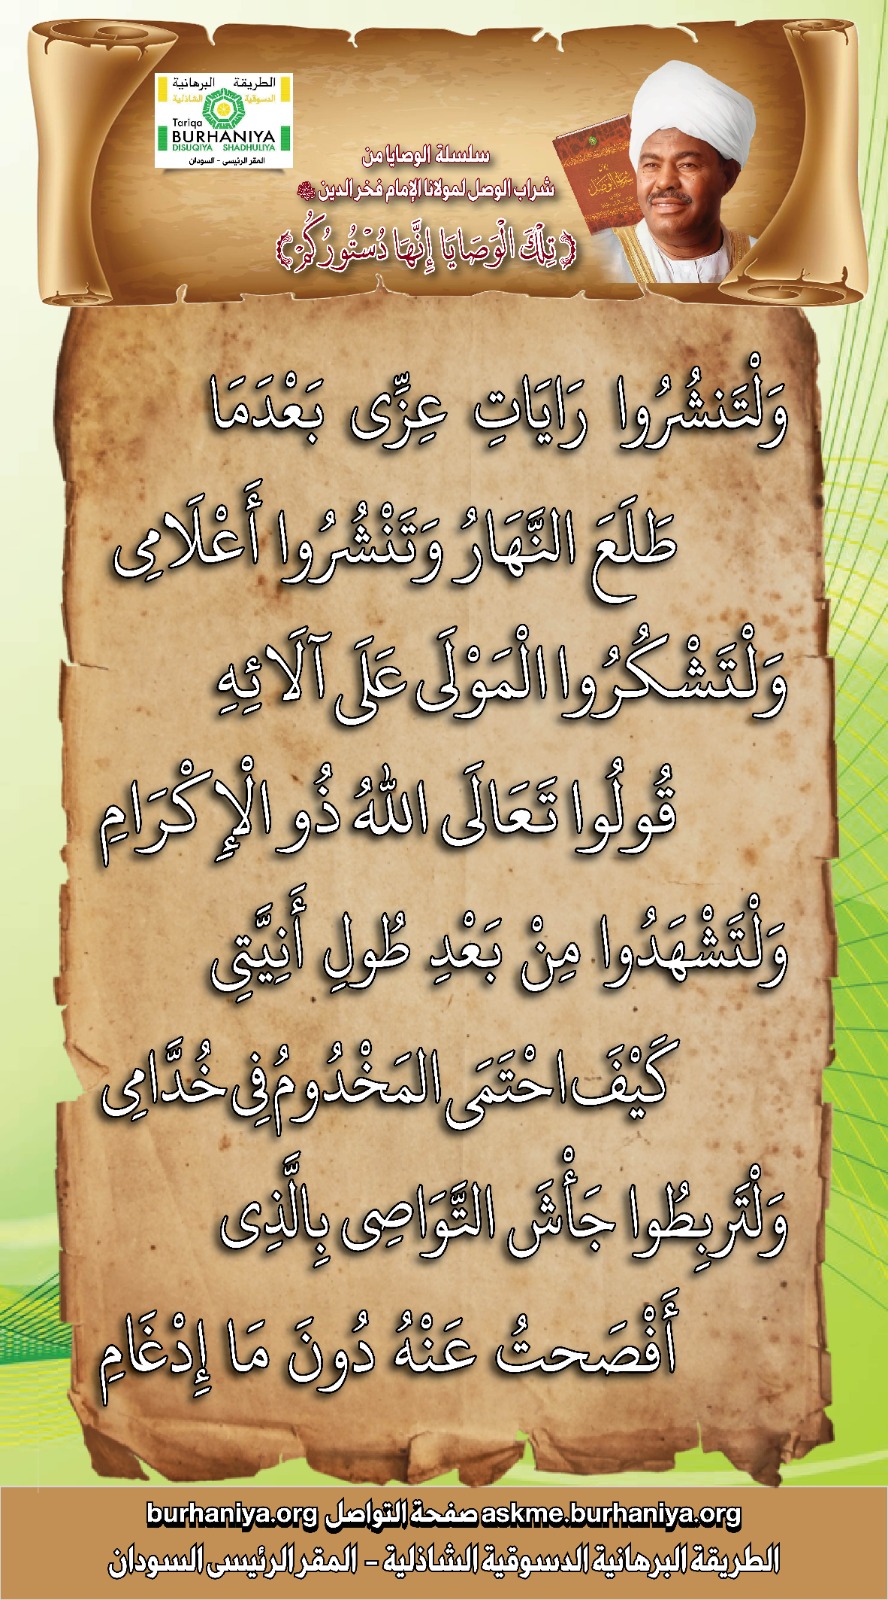 الطريقة البرهانية
الدسوقية الشاذلية
Tariqa
BURHANIYA
DISUQIYA SHADHULIYA
المقر الرئيسى - السودان
سلسلة الوصايا من
شراب الوصل لمولانا الإمام فخر الدين
﴿ تِلْكَ الْوَصَايَا إِنَّهَا دُسْتُورُكُمْ ﴾
شراب الوصل
وَلْتَنشُرُوا رَايَاتِ عِزِّى بَعْدَمَا
طَلَعَ النَّهَارُ وَتَنْشُرُوا أَعْلَامِى
وَلْتَشْكُرُوا الْمَوْلَى عَلَى آلَائِهِ
قُولُوا تَعَالَى اللهُ ذُو الْإِكْرَامِ
وَلْتَشْهَدُوا مِنْ بَعْدِ طُولِ أَنِيَّتِى
كَيْفَ احْتَمَى المَخْدُومُ فِى خُدَّامِى
وَلْتَربِطُوا جَأْشَ التَّوَاصِى بِالَّذِى
أَفْصَحتُ عَنْهُ دُونَ مَا إِدْغَامِ
burhaniya.org صفحة التواصل askme.burhaniya.org
الطريقة البرهانية الدسوقية الشاذلية - المقر الرئيسى السودان